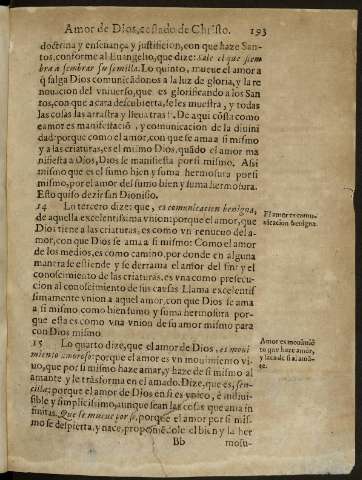 Amor de Dios, estado de Christo. 193
doctrina y enseñança y justificion, con que haze San-
tos, conforme al Euangelio, que dize: sale el que siem
bra a sembrar su semilla. Lo quinto, mueue el amor a
q̃ salga Dios comunicãdonos a la luz de gloria, y la re
nouacion del vniuerso, que es glorificando a los San
tos, con que a cara descubierta, se les muestra, y todas
las cosas las arrastra y lleua tras si. De aqui cõsta como
el amor es manifestaciõ, y comunicacion de la diuini
dad: porque como el amor, con que se ama a si mismo
y a las criaturas, es el mismo Dios, quãdo el amor ma
nifiesta a Dios, Dios se manifiesta por si mismo. Assi
mismo que es el sumo bien y suma hermosura por si
mismo, por el amor del sumo bien y suma hermosura.
Esto quiso dezir san Dionisio.
14 Lo tercero dize: que, es comunicacion benigna,
de aquella excelentissima vnion: porque el amor, que
Dios tiene a las criaturas, es como vn renueuo del a-
mor, con que Dios se ama a si mismo: Como el amor
de los medios, es como camino, por donde en alguna
manera se estiende y se derrama el amor del fin: y el
conoscimiento de las criaturas, es vna como prosecu-
cion al conoscimiento de sus causas. Llama excelentis
simamente vnion a aquel amor, con que Dios se ama
a si mismo como bien sumo y suma hermosura por-
que esta es como vna vnion de su amor mismo para
con Dios mismo.
El amor es comu-
nicacion benigna.
15 Lo quarto dize, que el amor de Dios, es moui
miento amoroso: porque el amor es vn mouimiento vi-
uo, que por si mismo haze amar, y haze a si mismo al
amante y le trãsforma en el amado. Dize, que es, sen-
cilla: porque el amor de Dios en si es vnico, è indiui-
sible y simplicissimo, aunque sean las cosas que ama in
finitas. Que se mueue por si, porque el amor por si mis-
mo se despierta, y nace, proponiẽdole el bien y la her
Amor es mouimiẽ
to que haze amar,
Bb mosu-